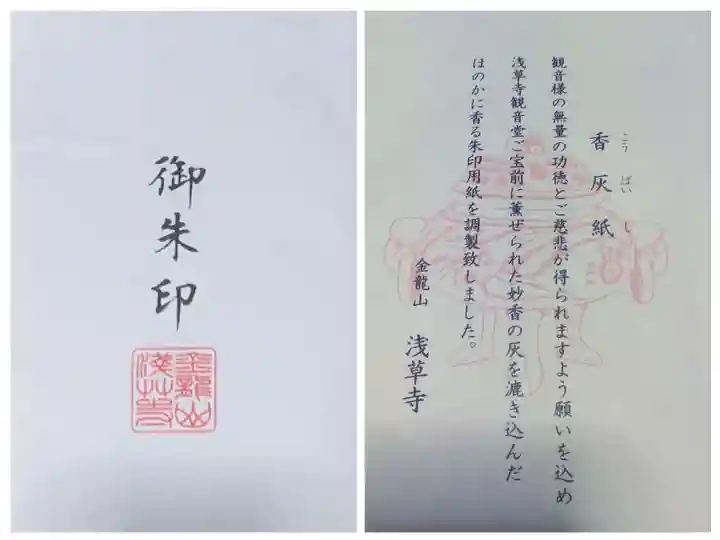 御朱印
金龍山
浅草寺
香灰紙
こう ばい し
観音様の無量の功徳とご慈悲が得られますよう願いを込め
浅草寺観音堂ご宝前に薫ぜられた妙香の灰を漉き込んだ
ほのかに香る朱印用紙を調製致しました。
金龍山 浅草寺